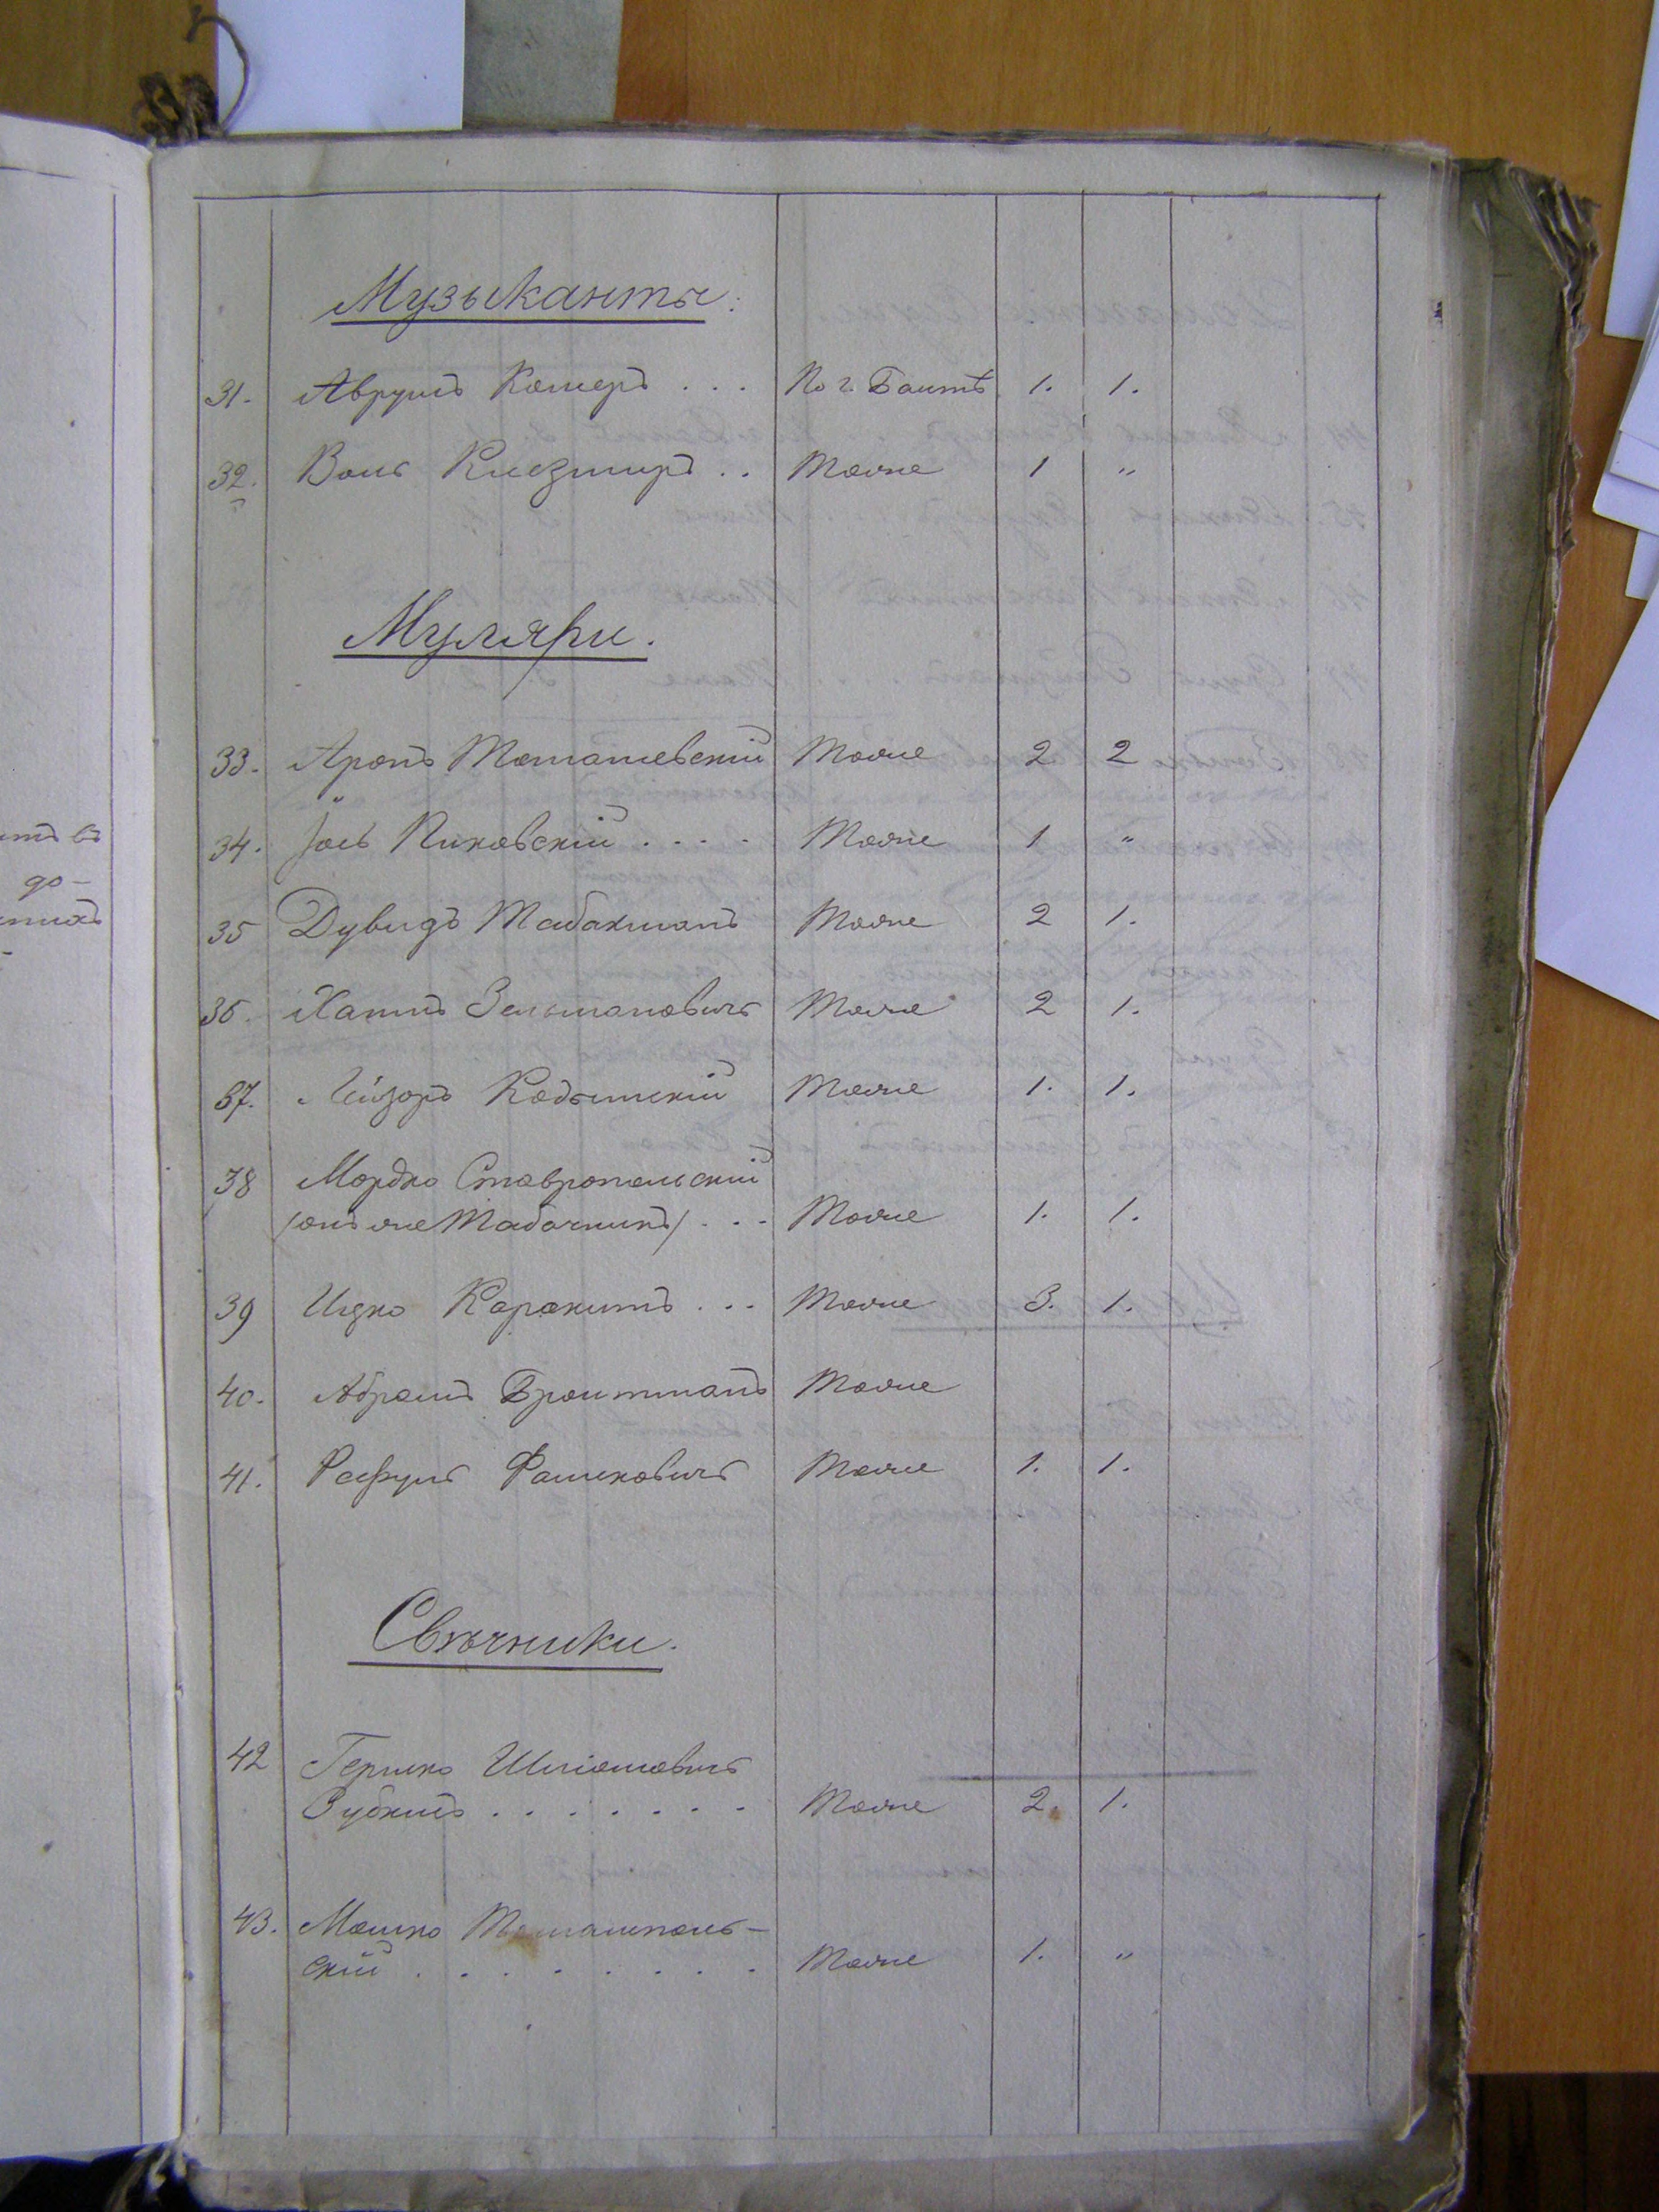 Музыканты:
31. Аврумъ Комеръ . . . По г. Балтѣ 1. 1.
32. Воль Клезмиръ . . Тоже 1 "
Муляри.
33. Аронъ Томашевскій Тоже 2 2
34. Іось Пиковскій . . . . Тоже 1 "
35 Дувидъ Табакманъ Тоже 2 1.
36. Хаимъ Зельмановичъ Тоже 2 1.
37. Лейзоръ Кодымскій Тоже 1. 1.
38 Мордко Ставропольскій
/онъ же Табачникъ/ . . . Тоже 1. 1.
39 Ицко . . . Тоже 3. 1.
40. Абрамъ Бройтманъ Тоже
41. Рафулъ Фаликовичъ Тоже 1. 1.
Свѣчники.
42 Гершко Шліомовичъ
. . . . . . . Тоже 2. 1.
43. Мошко Томашполь-
скій . . . . . . . . . Тоже 1. "
до-